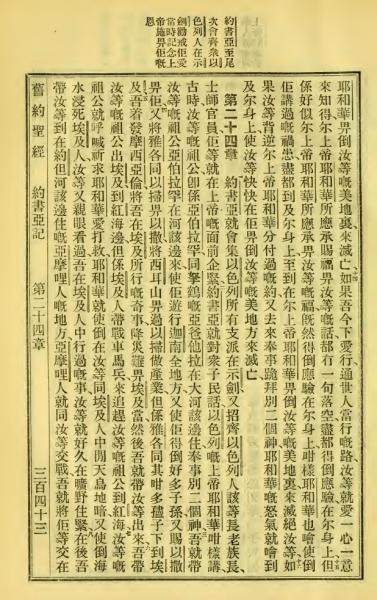 約書亞至尾
次會齊衆以
色列人在示
劍勸戒佢愛
當時記念上
帝施畀佢嘅
恩
耶和華畀倒汝等嘅美地裏來滅亡如果吾今下愛行通世人當行嘅路汝等就愛一心一意
來知得尔上帝耶和華所應承賜福畀汝等嘅話都冇一句落空盡都得倒應驗在尔身上但
係好似尔上帝耶和華所應承畀汝等嘅福既然得倒應驗在尔身上咁樣耶和華也噲使倒
佢講過嘅禍患盡都到及尔身上至到在尔上帝耶和華畀倒汝等嘅美地裏來滅絕汝等如
果汝等背逆尔上帝耶和華分付過嘅約又去來奉事跪拜別二個神耶和華嘅怒氣就噲到
及尔身上使汝等快快在佢畀倒汝等嘅美地方來滅亡
第二十四章 約書亞就會集以色列所有支派在示劍又招齊以色列人該等長老族長
士師官員佢等就在上帝嘅面前企緊約書亞就對衆子民話以色列嘅上帝耶和華咁樣講
古時汝等嘅祖公卽係亞伯拉罕同拏鶴嘅亞爸他拉在大河該邊住奉事別二個神吾就帶
汝等嘅祖公亞伯拉罕在河該邊來使佢遊行迦南全地方又使佢得倒好多子孫又賜以撒
畀佢又將雅各同以掃畀以撒將西耳山畀過以掃做產業但係雅各同其咁多孻子下到埃
及吾着發摩西亞倫將吾在埃及所行嘅奇事降災難畀埃及當然後吾就帶汝等出來吾帶
汝等嘅祖公出埃及到紅海邊但係埃及人帶戰車馬兵來追趕汝等嘅祖公到紅海汝等嘅
祖公就呼喊祈求耶和華愛打救耶和華就使倒在汝等同埃及人中間天烏地暗又使倒海
水浸死埃及人汝等又親眼看過吾在埃及人中行過嘅事汝等就好久在曠野住緊在後吾
帶汝等到在約但河該邊住嘅亞摩哩人嘅地方亞摩哩人就同汝等交戰吾就將佢等交在
舊約聖經 約書亞記 第二十四章 三百四十三